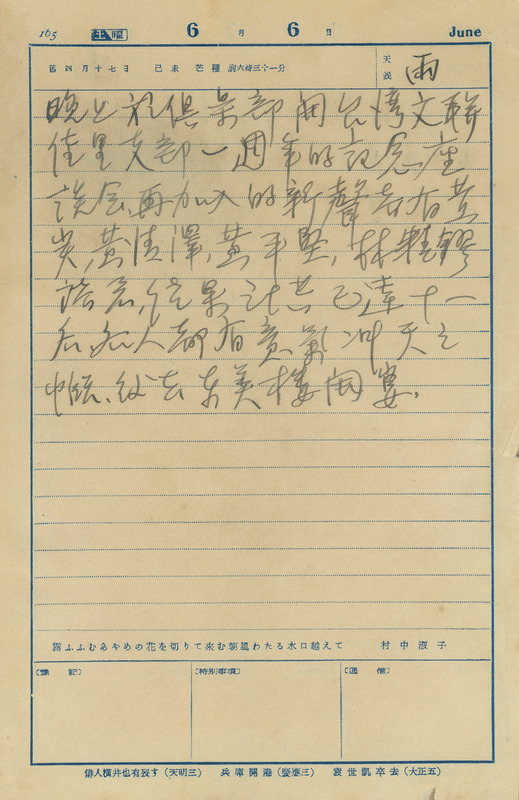 165 土曜 6月6日 June
舊四月十七日 己未 芒種 前六時三十一分 天候 雨
晚上於俱樂部開台湾文聯
佳里支部一週年的記念座
談会、再加入的新聲者有黃
炭、黃清澤、黃平堅、林精鏐
諸君、結果計共已達十一
名、各人都有意氣冲天之
慨、後去東美樓開宴、
露ふふむあやめの花を切りて來む朝風わたる水口越えて 村中淑子
〔雜記〕 〔特別事項〕 〔通信〕
俳人横井也有歿す(天明三) 兵庫開港(慶應三) 袁世凱卒去(大正五)